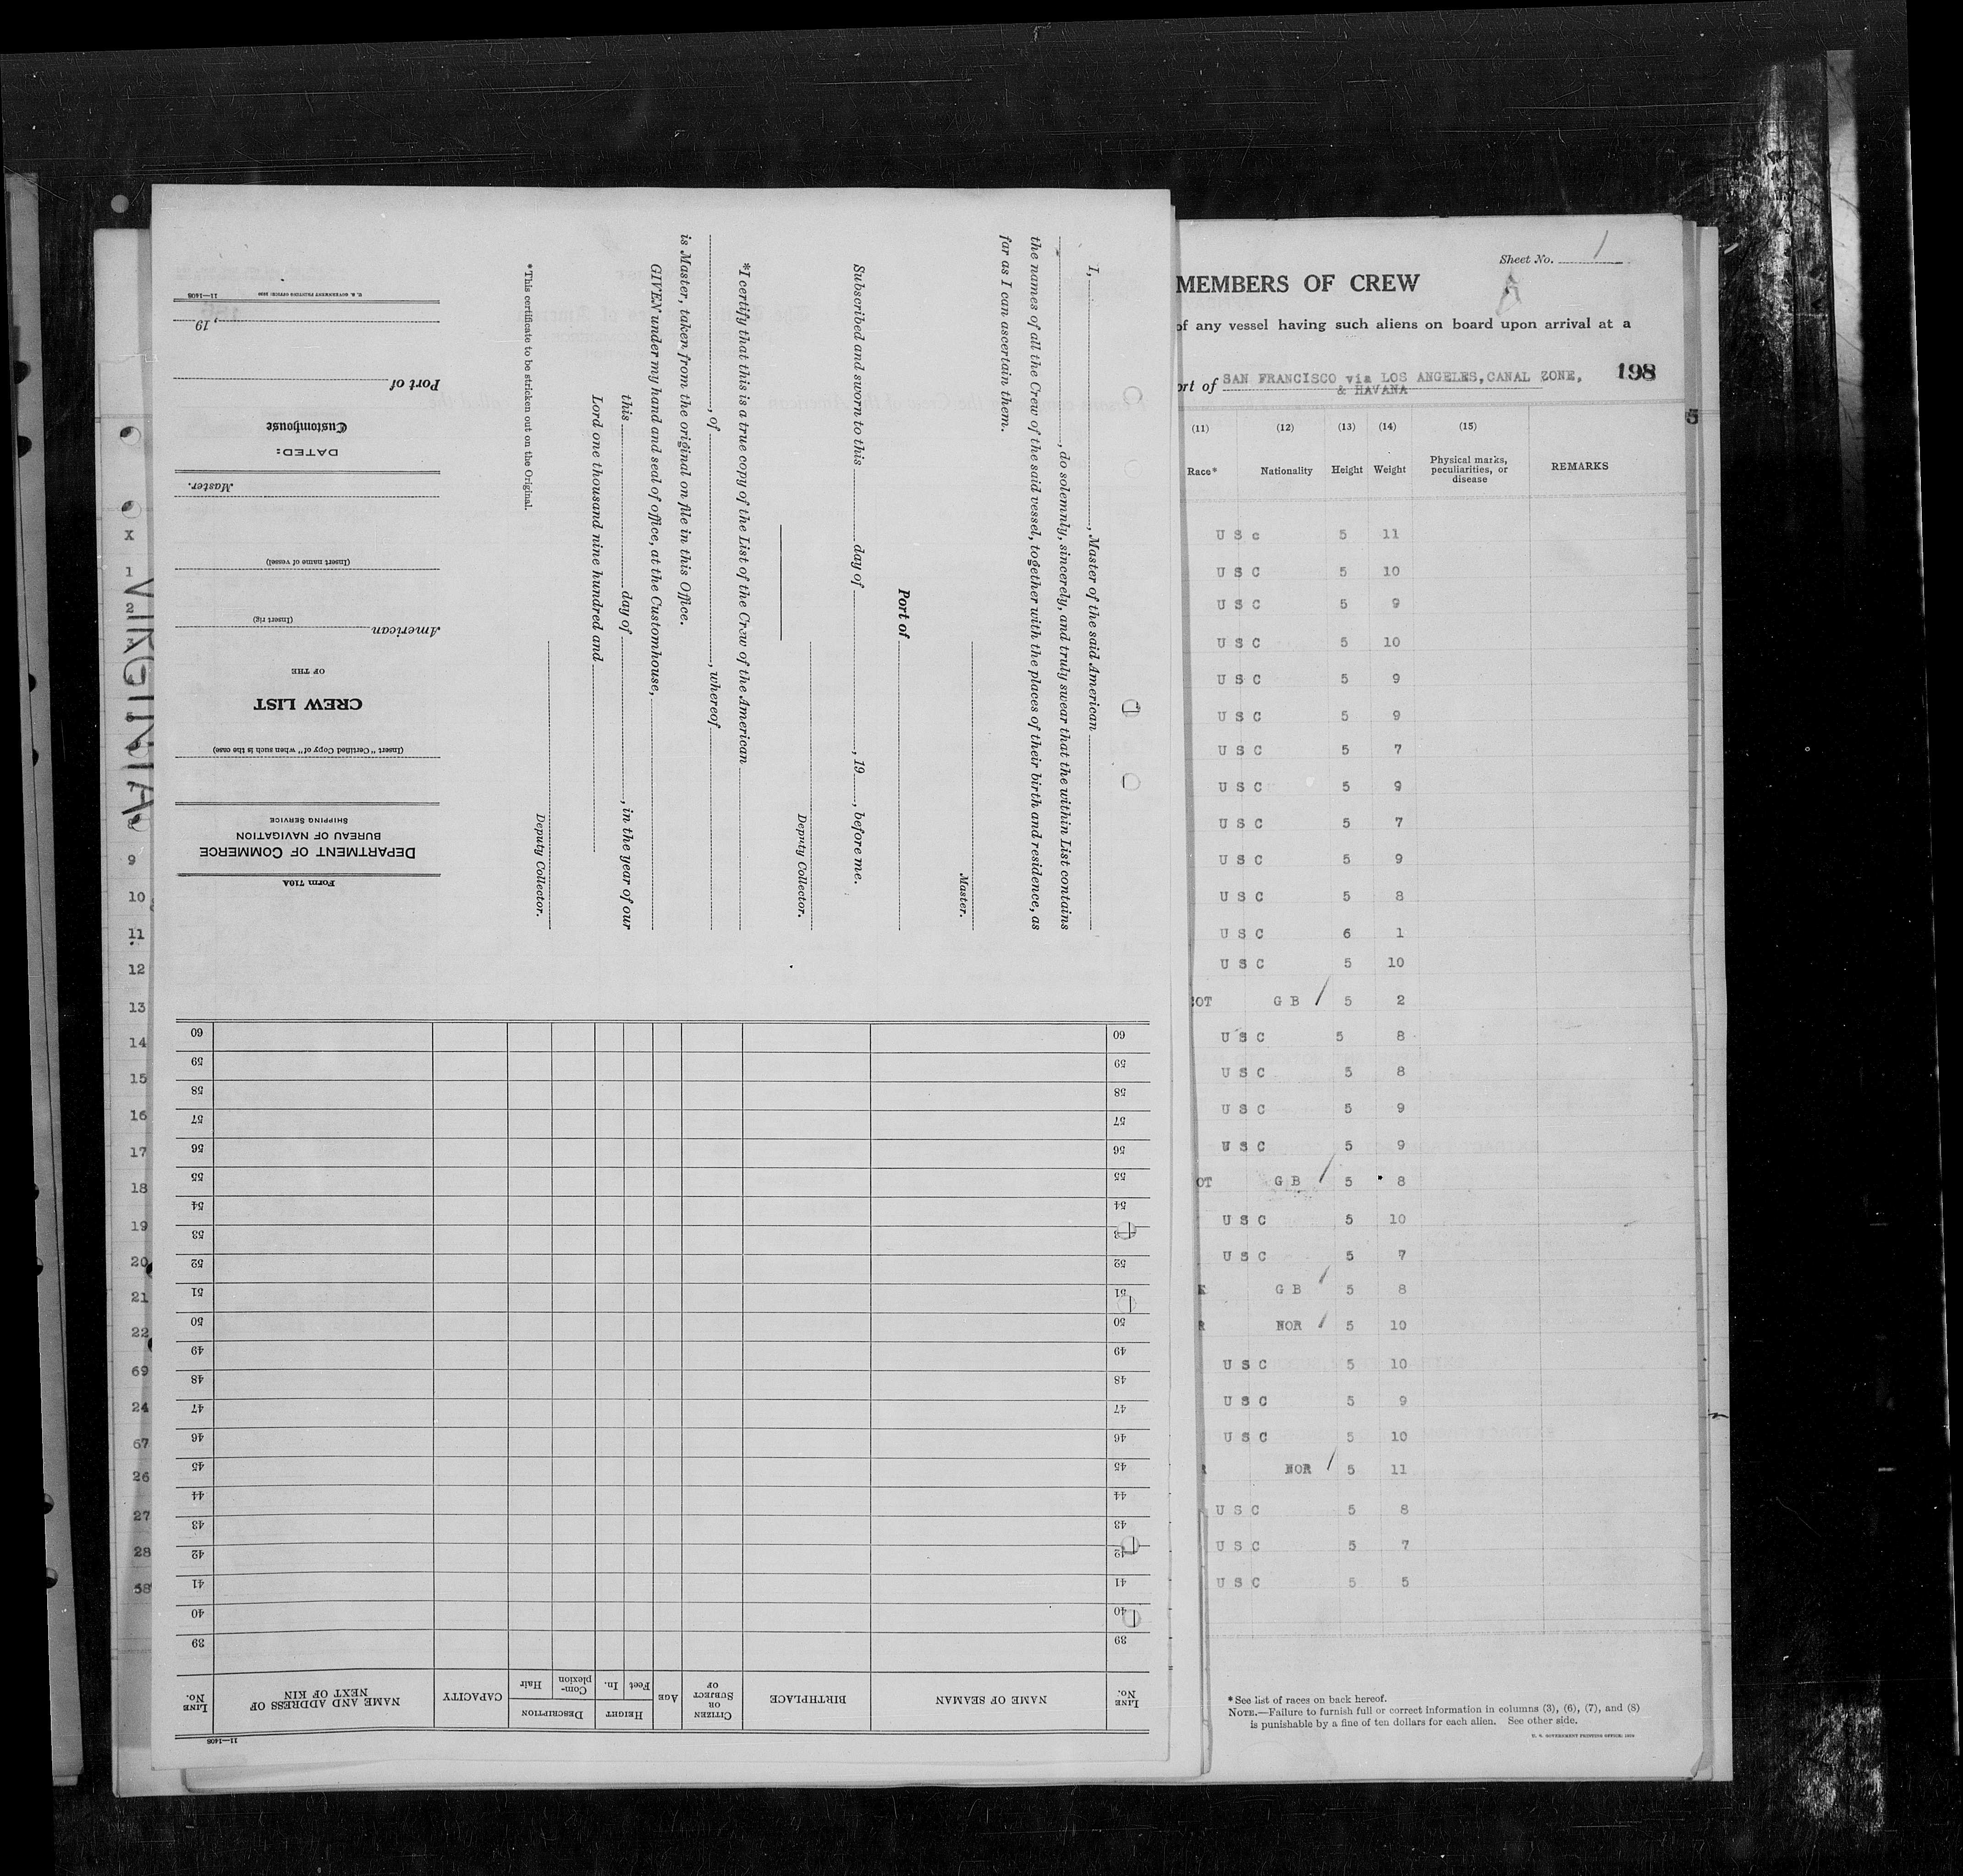 Sheet No. 1
MEMBERS OF CREW
of any vessel having such aliens on board upon arrival at a
ort of SAN FRANCISCO via LOS ANGELES, CANAL ZONE,
& HAVANA
198
5
(11) (12) (13) (14) (15)
Race* Nationality Height Weight Physical marks, peculiarities, or disease REMARKS
U S c 5 11
U S C 5 10
U S C 5 9
U S C 5 10
U S C 5 9
U S C 5 9
U S C 5 7
U S C 5 9
U S C 5 7
U S C 5 9
U S C 5 8
U S C 6 1
U S C 5 10
OT G B / 5 2
U S C 5 8
U S C 5 8
U S C 5 9
U S C 5 9
OT G B / 5 8
U S C 5 10
U S C 5 7
G B / 5 8
R NOR / 5 10
U S C 5 10
U S C 5 9
U S C 5 10
NOR / 5 11
U S C 5 8
U S C 5 7
U S C 5 5
*See list of races on back hereof.
NOTE.—Failure to furnish full or correct information in columns (3), (6), (7), and (8)
is punishable by a fine of ten dollars for each alien. See other side.
U. S. GOVERNMENT PRINTING OFFICE:
VIRGINIA
X
1
2
5
8
9
10
11
12
13
14
15
16
17
18
19
20
21
22
69
24
67
26
27
28
58
I, , Master of the said American
, do solemnly, sincerely, and truly swear that the within List contains
the names of all the Crew of the said vessel, together with the places of their birth and residence, as
far as I can ascertain them.
Master.
Port of
Subscribed and sworn to this day of , 19 , before me.
Deputy Collector.
*I certify that this is a true copy of the List of the Crew of the American
, of , whereof
is Master, taken from the original on file in this Office.
GIVEN under my hand and seal of office, at the Customhouse,
this day of , in the year of our
Lord one thousand nine hundred and
Deputy Collector.
*This certificate to be stricken out on the Original.
Form 710A
DEPARTMENT OF COMMERCE
BUREAU OF NAVIGATION
SHIPPING SERVICE
(Insert "Certified Copy of" when such is the case)
CREW LIST
OF THE
American
(Insert rig)
(Insert name of vessel)
Master.
DATED:
Customhouse
Port of
, 19
U. S. GOVERNMENT PRINTING OFFICE:
11—1408
11—1408
LINE No. NAME OF SEAMAN BIRTHPLACE CITIZEN OR SUBJECT OF AGE HEIGHT Feet In. DESCRIPTION Complexion Hair CAPACITY NAME AND ADDRESS OF NEXT OF KIN LINE No.
39 39
40 40
41 41
42 42
43 43
44 44
45 45
46 46
47 47
48 48
49 49
50 50
51 51
52 52
53 53
54 54
55 55
56 56
57 57
58 58
59 59
60 60